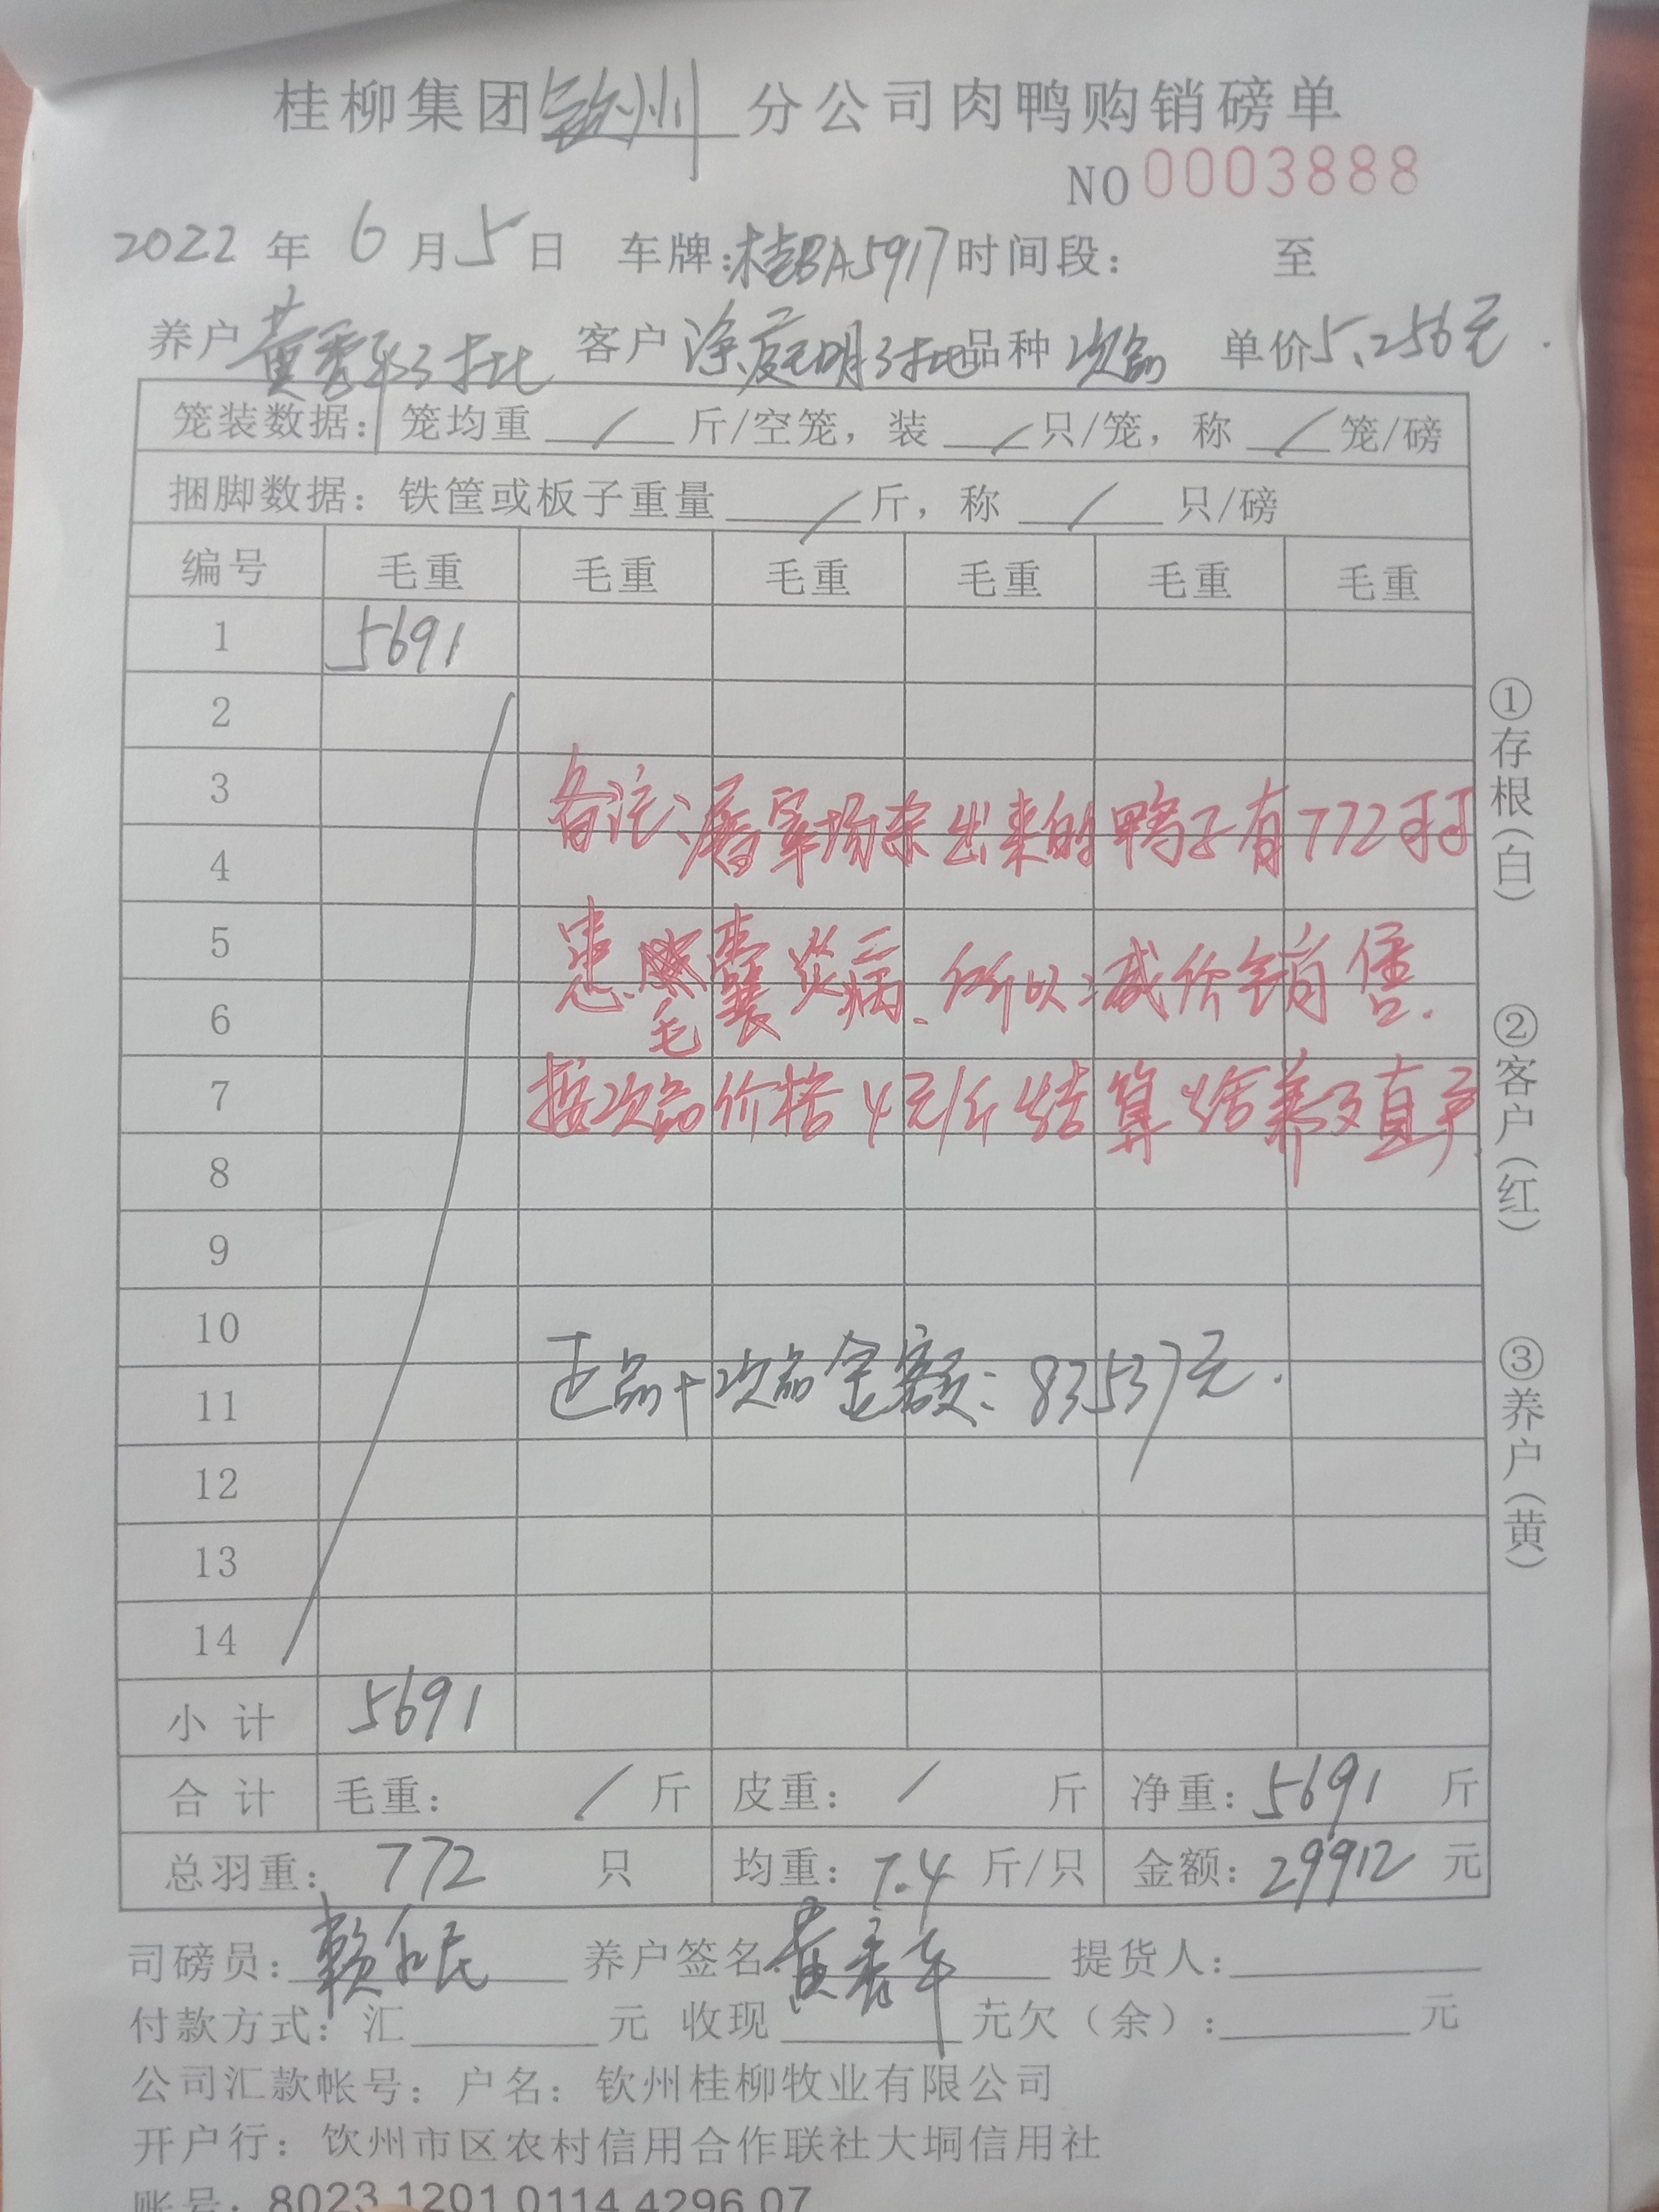 桂柳集团钦州分公司肉鸭购销磅单
NO 0003888
2022年6月5日 车牌:桂BA5917时间段: 至
养户黄秀军3批 客户涂庭明3批品种次品 单价5.256元.
笼装数据: 笼均重 / 斤/空笼, 装 / 只/笼, 称 / 笼/磅
捆脚数据: 铁筐或板子重量 / 斤, 称 / 只/磅
编号 毛重 毛重 毛重 毛重 毛重 毛重
1 5691
2
3
备注:屠宰场杀出来的鸭子有772只
4
5
患毛囊炎病.所以减价销售.
6
7
按次品价格4元/斤结算给养户
8
9
10
正品+次品金额:83537元.
11
12
13
14
小计 5691
合计 毛重: / 斤 皮重: / 斤 净重:5691 斤
总羽重: 772 只 均重:7.4 斤/只 金额:29912 元
司磅员: 养户签名: 黄秀军 提货人:
付款方式: 汇 元 收现 元欠(余): 元
公司汇款帐号: 户名: 钦州桂柳牧业有限公司
开户行: 钦州市区农村信用合作联社大垌信用社
账号: 8023 1201 0114 4296 07
①存根(白)
②客户(红)
③养户(黄)